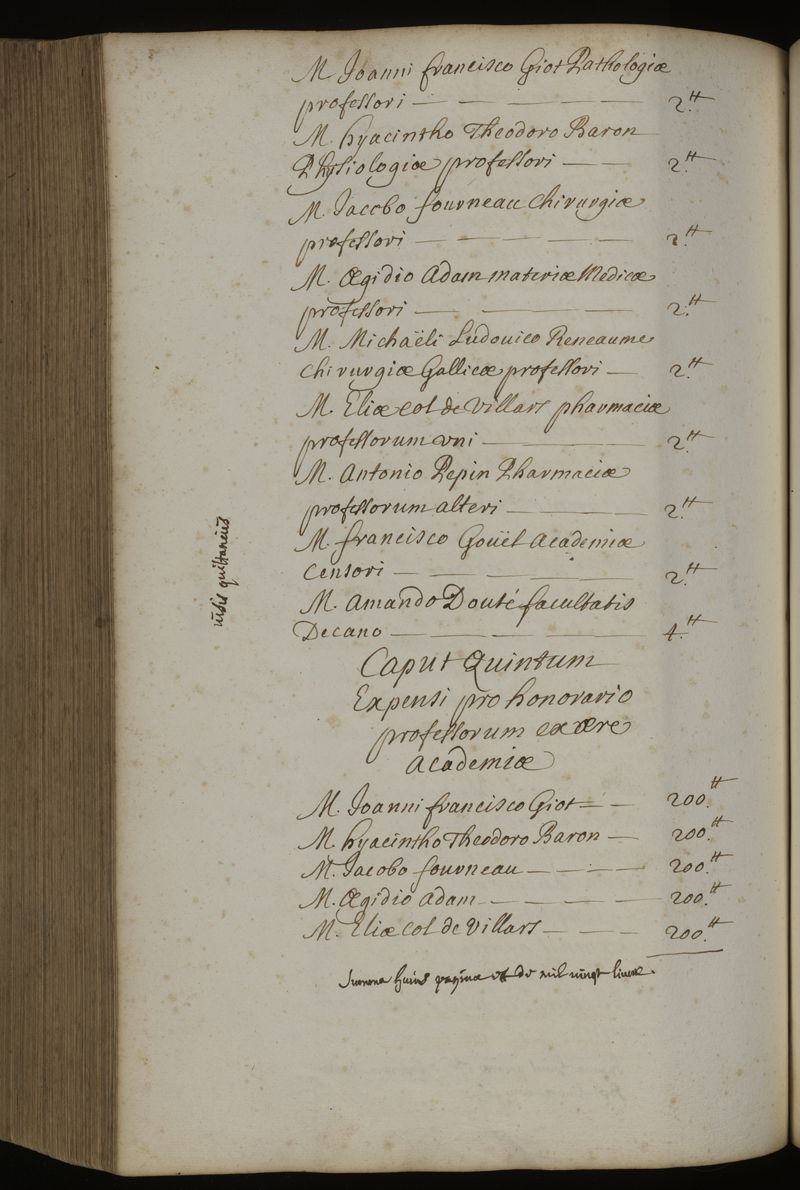 M Joanni francisco Giot Pathologiæ
professori — — — — — 2.tt
M. hyacintho Theodoro Baron
Physiologiæ professori — — 2.tt
M. Jacobo fourneau Chirurgiæ
professori — — — — — 2.tt
M. Ægidio Adam materiæ Medicæ
professori — — — — 2.tt
M. Michaëli Ludovico Reneaume
Chirurgiæ Gallicæ professori — 2.tt
M. Eliæ col de Villars pharmaciæ
professorum uni — — — 2.tt
M. Antonio Pepin Pharmaciæ
professorum alteri — — — 2.tt
M. francisco Gouël Academiæ
Censori — — — — — 2.tt
M. Amando Douté facultatis
Decano — — — — — 4.tt
iisdis quittancius
Caput Quintum
Expensi pro honorario
professorum ex ære
Academiæ
M. Joanni francisco Giot — — 200.tt
M. hyacintho Theodoro Baron — 200.tt
M. Jacobo fourneau — — — — 200.tt
M. Ægidio Adam — — — — 200.tt
M. Eliæ Col de Villars — — — 200.tt
Summa huius paginæ est de mil vingt livres.